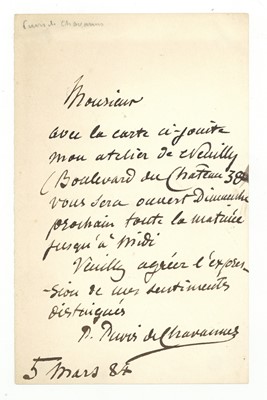 Puvis de Chavannes
Monsieur
avec la carte ci-jointe
mon atelier de Neuilly
(Boulevard du Château 38)
vous sera ouvert Dimanche
prochain toute la matinée
jusqu'à Midi
Veuillez agréer l'expres-
-sion de mes sentiments
distingués
P. Puvis de Chavannes
5 Mars 84